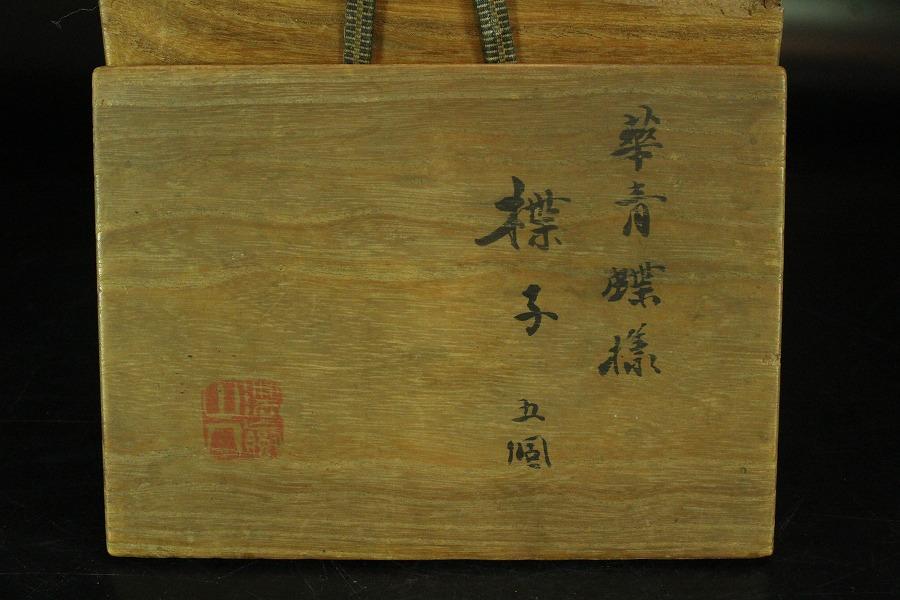 華青蝶様
楪子 五個